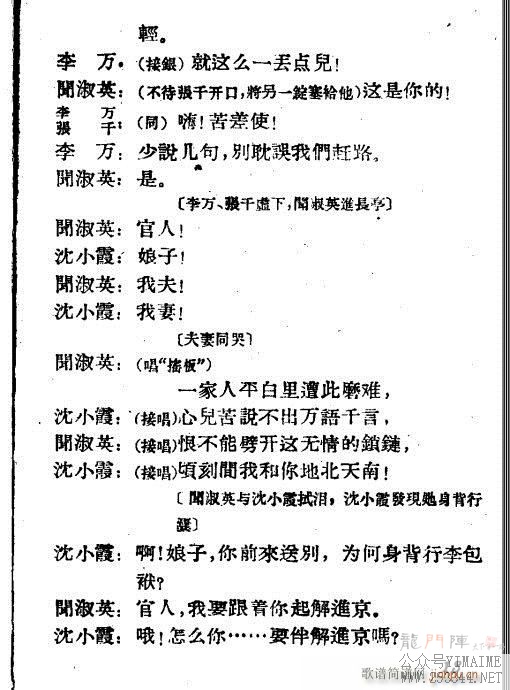 輕。
李　万：(接銀)就这么一丟点兒！
聞淑英：(不待張千开口，將另一錠塞給他)这是你的！
李　万
張　千：(同)嗨！苦差使！
李　万：少說几句，別耽誤我們赶路。
聞淑英：是。
〔李万、張千虛下，聞淑英進長亭〕
聞淑英：官人！
沈小霞：娘子！
聞淑英：我夫！
沈小霞：我妻！
〔夫妻同哭〕
聞淑英：(唱“搖板”)
一家人平白里遭此磨难，
沈小霞：(接唱)心兒苦說不出万語千言，
聞淑英：(接唱)恨不能劈开这无情的鎖鏈，
沈小霞：(接唱)頃刻間我和你地北天南！
〔聞淑英与沈小霞拭泪，沈小霞發現她身背行
李〕
沈小霞：啊！娘子，你前來送別，为何身背行李包
袱？
聞淑英：官人，我要跟着你起解進京。
沈小霞：哦！怎么你……要伴解進京嗎？
龍門陣
歌谱简谱网
公众号YIMAIME